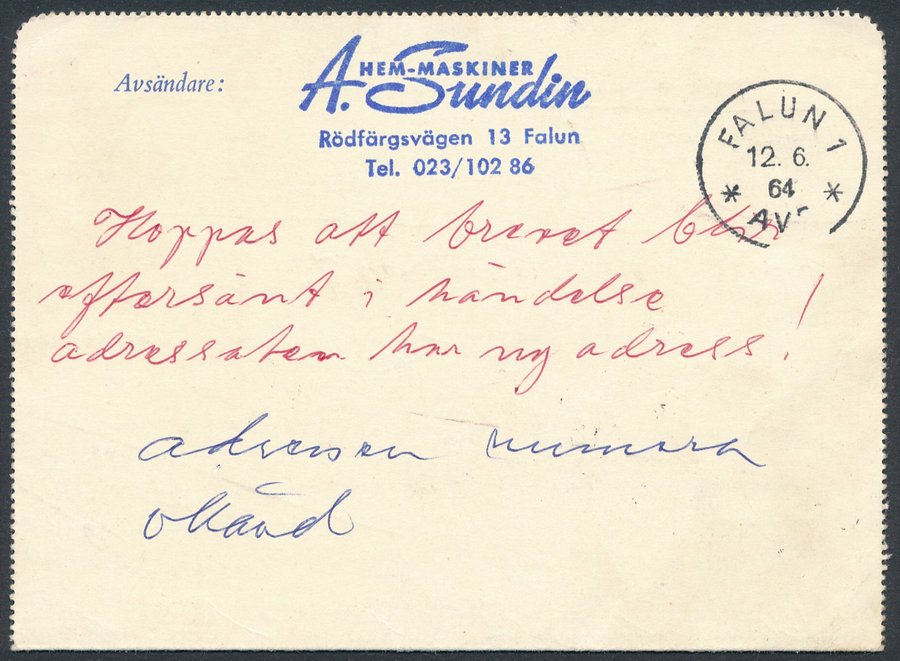 Avsändare:
HEM-MASKINER
A. Sundin
Rödfärgsvägen 13 Falun
Tel. 023/102 86
FALUN 1
12. 6.
64
AVG
Hoppas att brevet blir
eftersänt i händelse
adressaten har ny adress!
adressen numera
okänd